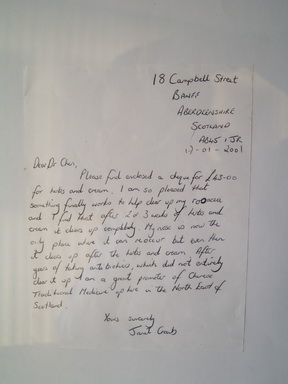 18 Campbell Street
BANFF
ABERDEENSHIRE
SCOTLAND
AB45 1JR
17-01-2001
Dear Dr Chen,
Please find enclosed a cheque for £45-00
for herbs and cream. I am so pleased that
something finally works to help clear up my rosacea
and I find that after 2 or 3 weeks of herbs and
cream it clears up completely. My nose is now the
only place where it can reoccur but even then
it clears up after the herbs and cream. After
years of taking antibiotics, which did not entirely
clear it up I am a great promoter of Chinese
Traditional Medicine up here in the North East of
Scotland.
Yours sincerely
Janet